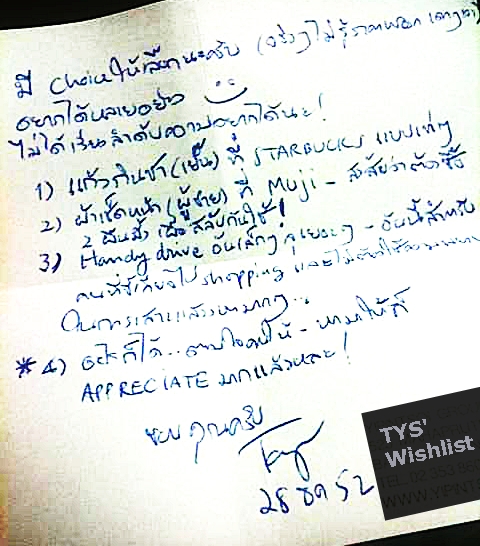 มี choice ให้เลือกนะครับ (จริงๆ ไม่รู้ราคาหรอก เดาๆ เอา)
อยากได้หลายอย่าง
ไม่ได้เรียงลำดับความอยากได้นะ!
1) แก้วกินชา (เย็น) ที่ STARBUCKS แบบเท่ๆ
2) ผ้าเช็ดหน้า (ผู้ชาย) ที่ Muji - สงสัยว่าต้องซื้อ
2 ผืน เพื่อ สลับกันใช้!
3) Handy drive อันเล็กๆ จุเยอะๆ - อันนี้สำหรับ
คนที่ขี้เกียจไป shopping และไม่ต้องใช้
ในการเสาะแสวงหามากๆ..
* 4) อะไรก็ได้.. ตามใจคนให้ - หามาให้ก็
APPRECIATE มากแล้วหละ!
ขอบคุณครับ
28 ธค 52
TYS'
Wishlist